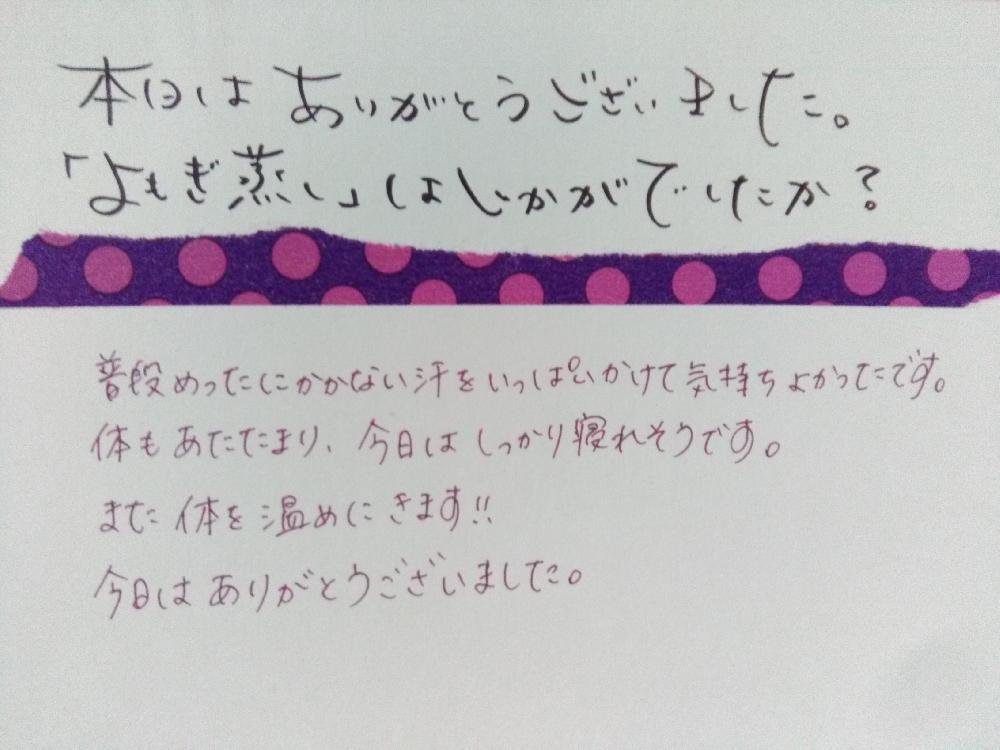 本日は ありがとうございました。
「よもぎ蒸し」はいかがでしたか？
普段めったにかかない汗をいっぱいかけて気持ちよかったです。
体もあたたまり、今日はしっかり寝れそうです。
また体を温めにきます!!
今日はありがとうございました。